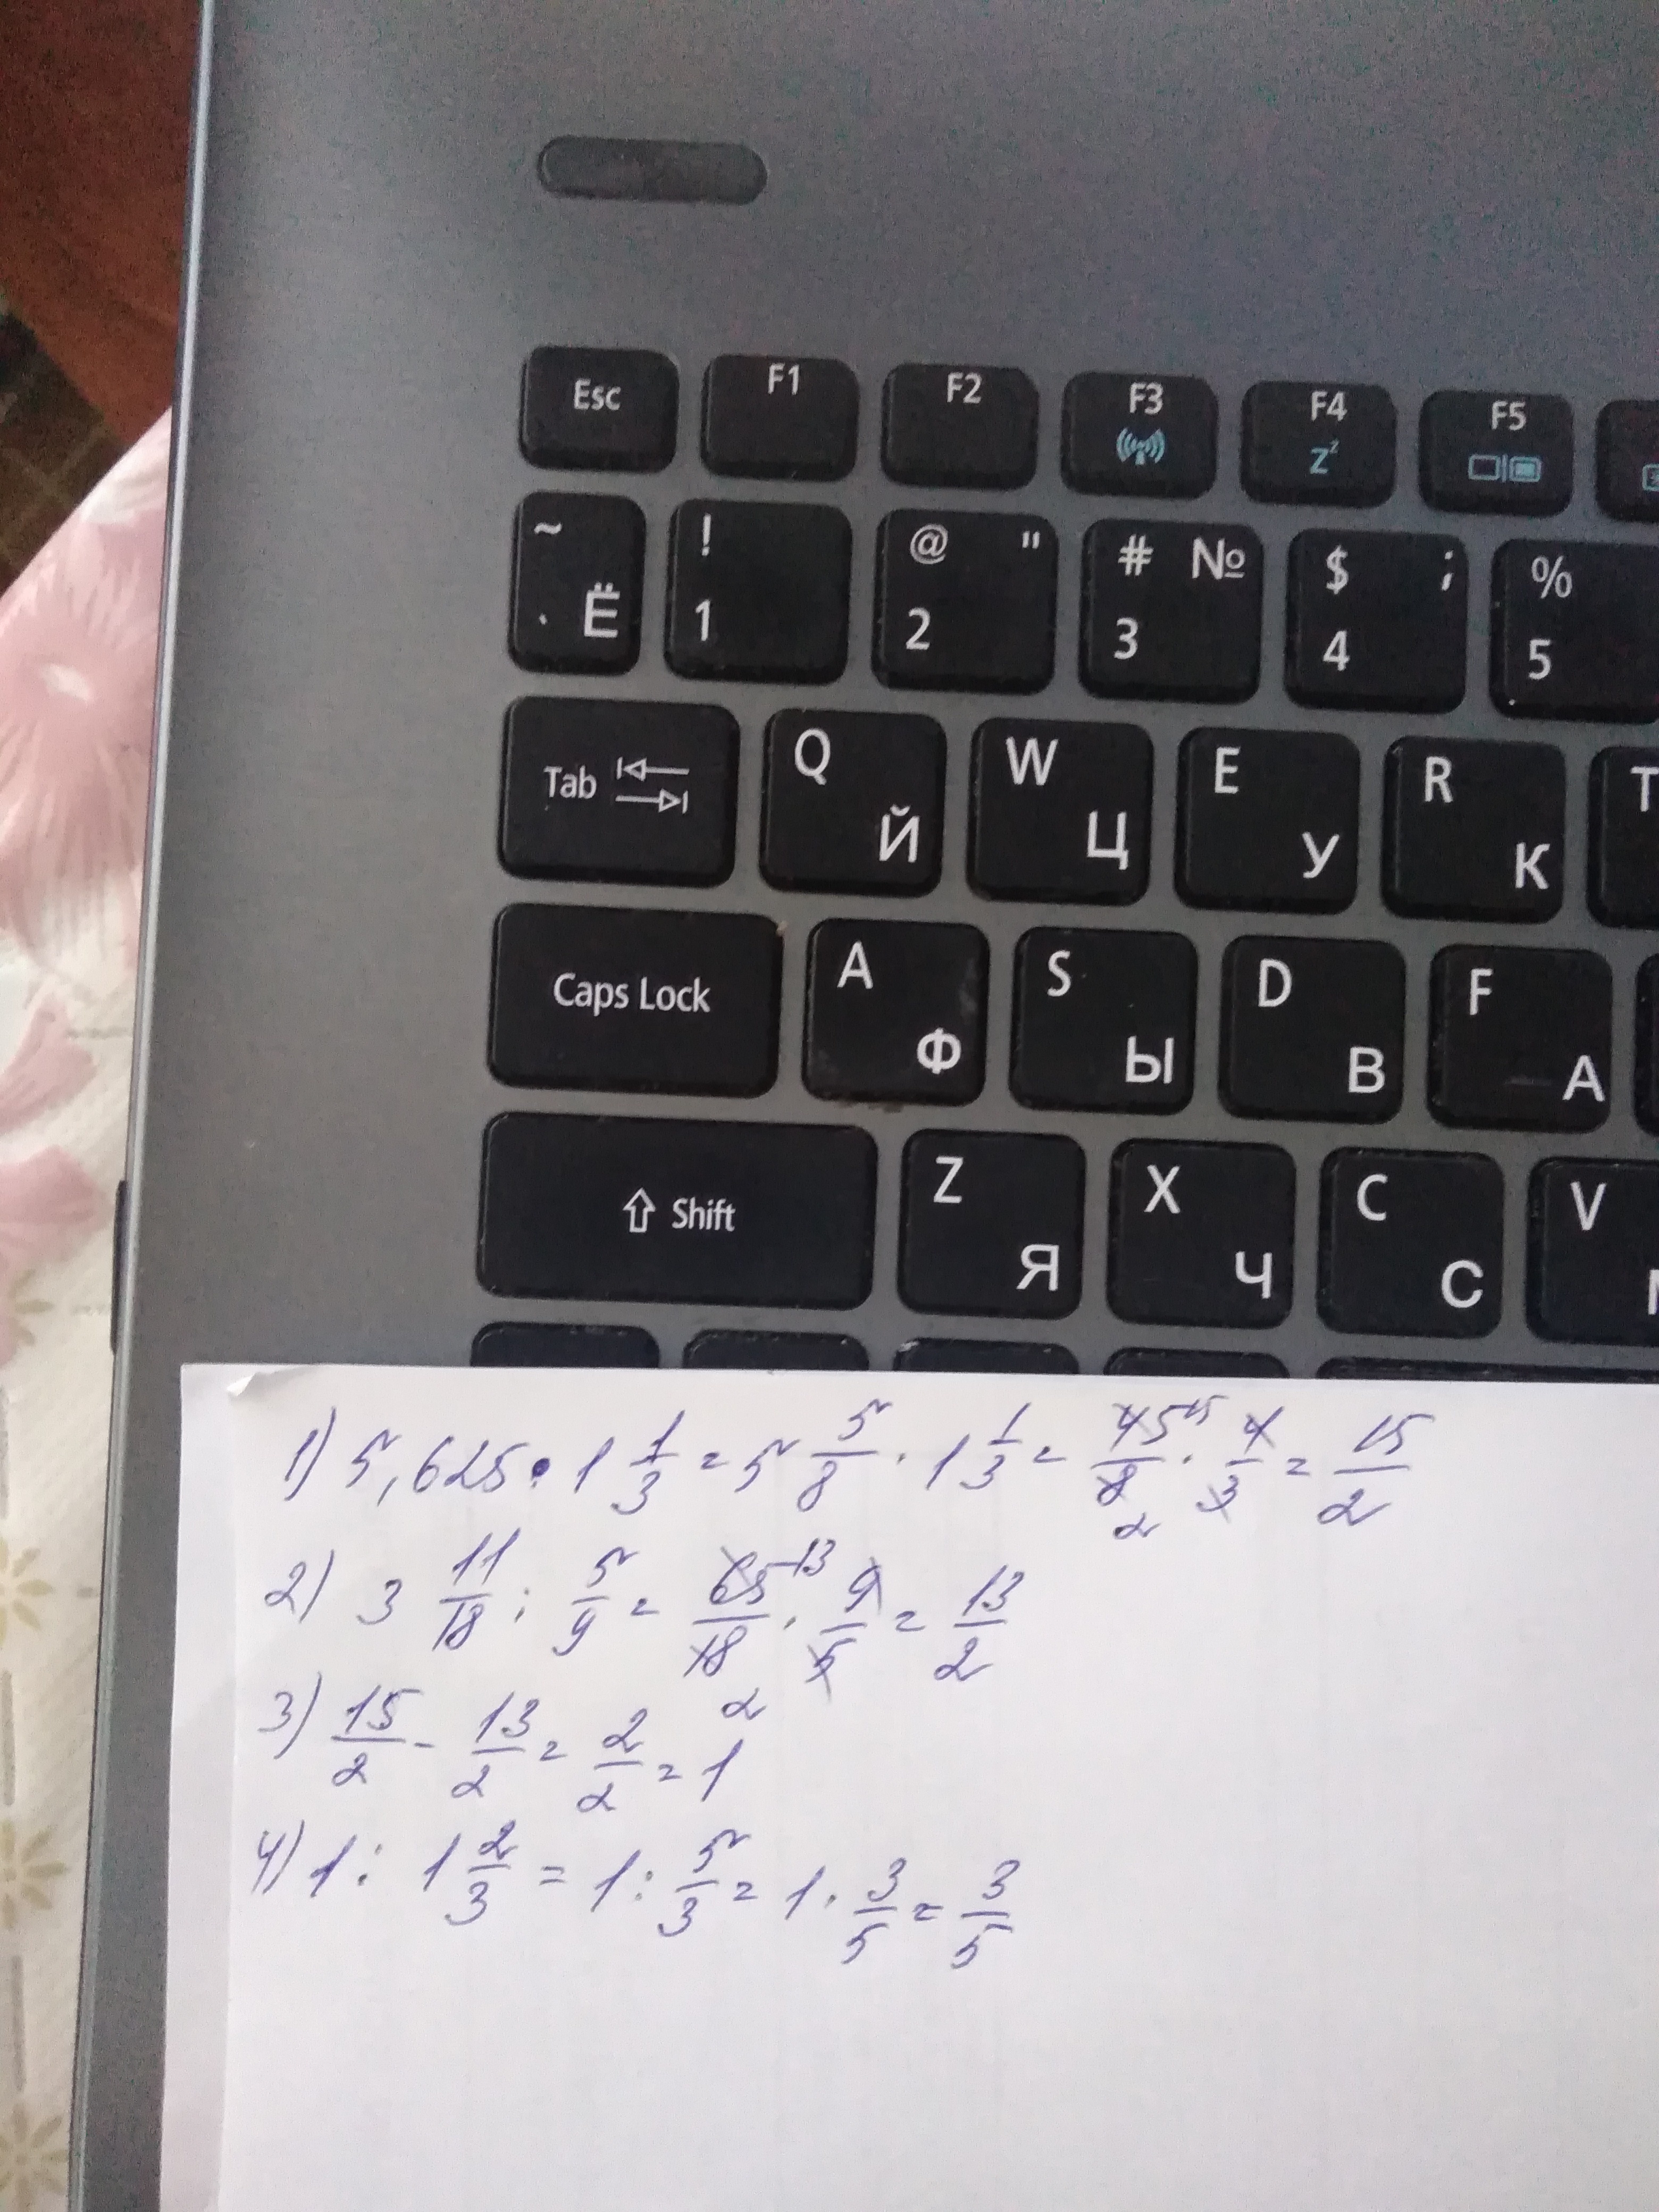 Esc F1 F2 F3 F4 Zz F5
~ Ё ! 1 @ " 2 # № 3 $ ; 4 % 5
Tab Q Й W Ц E У R К T
Caps Lock A Ф S Ы D В F А
Shift Z Я X Ч C С V
1) 5,625 · 1 1/3 = 5 5/8 · 1 1/3 = 45 15/8 2 · 4/3 = 15/2
2) 3 11/18 : 5/9 = 65 13/18 2 · 9/5 = 13/2
3) 15/2 - 13/2 = 2/2 = 1
4) 1 : 1 2/3 = 1 : 5/3 = 1 · 3/5 = 3/5